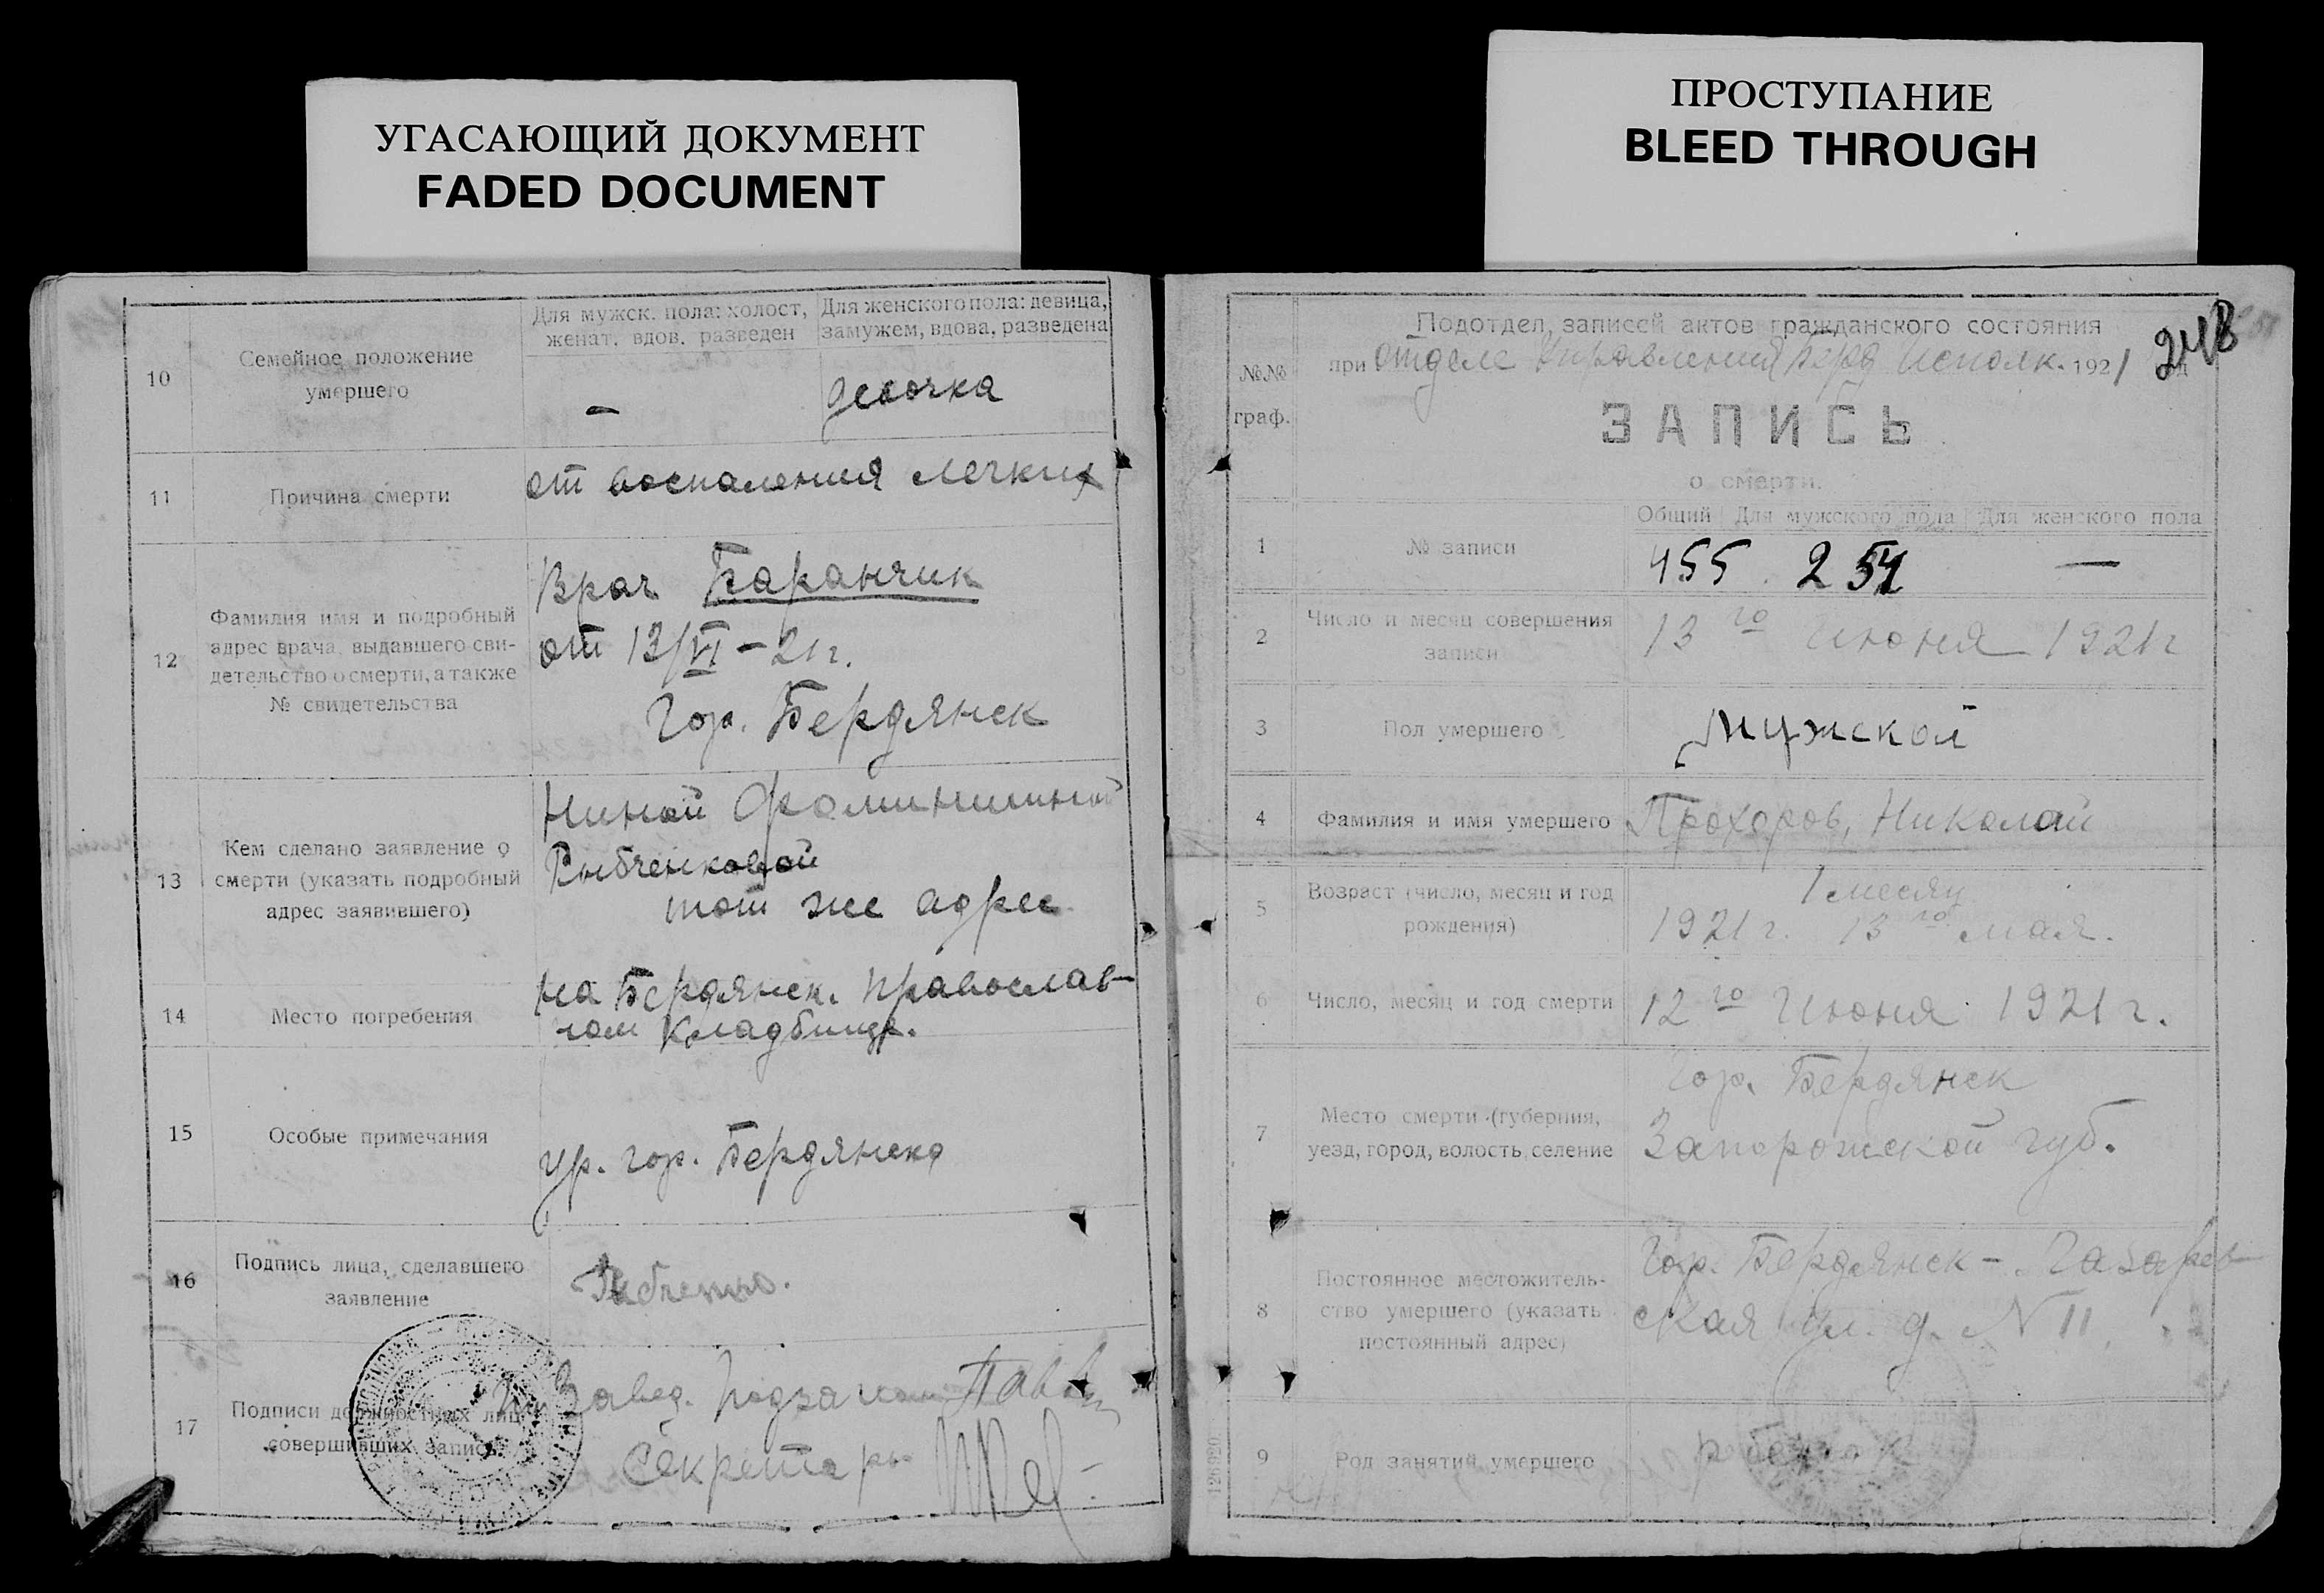 УГАСАЮЩИЙ ДОКУМЕНТ
FADED DOCUMENT
ПРОСТУПАНИЕ
BLEED THROUGH
10
Семейное положение
умершего
Для мужск. пола: холост,
женат, вдов, разведен
Для женского пола: девица,
замужем, вдова, разведена
–
девочка
11
Причина смерти
от воспаления легких
12
Фамилия имя и подробный
адрес врача, выдавшего сви-
детельство о смерти, а также
№ свидетельства
Врач Баранчик
от 13/VI – 21 г.
Гор. Бердянск
13
Кем сделано заявление о
смерти (указать подробный
адрес заявившего)
Ниной
Рыбченковой
тот же адрес
14
Место погребения
на Бердянск. православ-
ном кладбище.
15
Особые примечания
ур. гор. Бердянска
16
Подпись лица, сделавшего
заявление
17
Подписи должностных лиц
совершивших запись
Завед.
Секретарь
248
№№
граф.
Подотдел, записей актов гражданского состояния
при отделе Управления Берд Исполк. 1921
ЗАПИСЬ
о смерти.
1
№ записи
Общий
Для мужского пола
Для женского пола
455
254
—
2
Число и месяц совершения
записи
13 го Июня 1921 г
3
Пол умершего
Мужской
4
Фамилия и имя умершего
Прохоров, Николай
5
Возраст (число, месяц и год
рождения)
1 месяц
1921 г. 13 го мая.
6
Число, месяц и год смерти
12 го Июня 1921 г.
7
Место смерти (губерния,
уезд, город, волость, селение
Гор. Бердянск
Запорожской губ.
8
Постоянное местожитель-
ство умершего (указать
постоянный адрес)
Гор. Бердянск –
ская ул. д. N 11
9
Род занятий умершего
126920